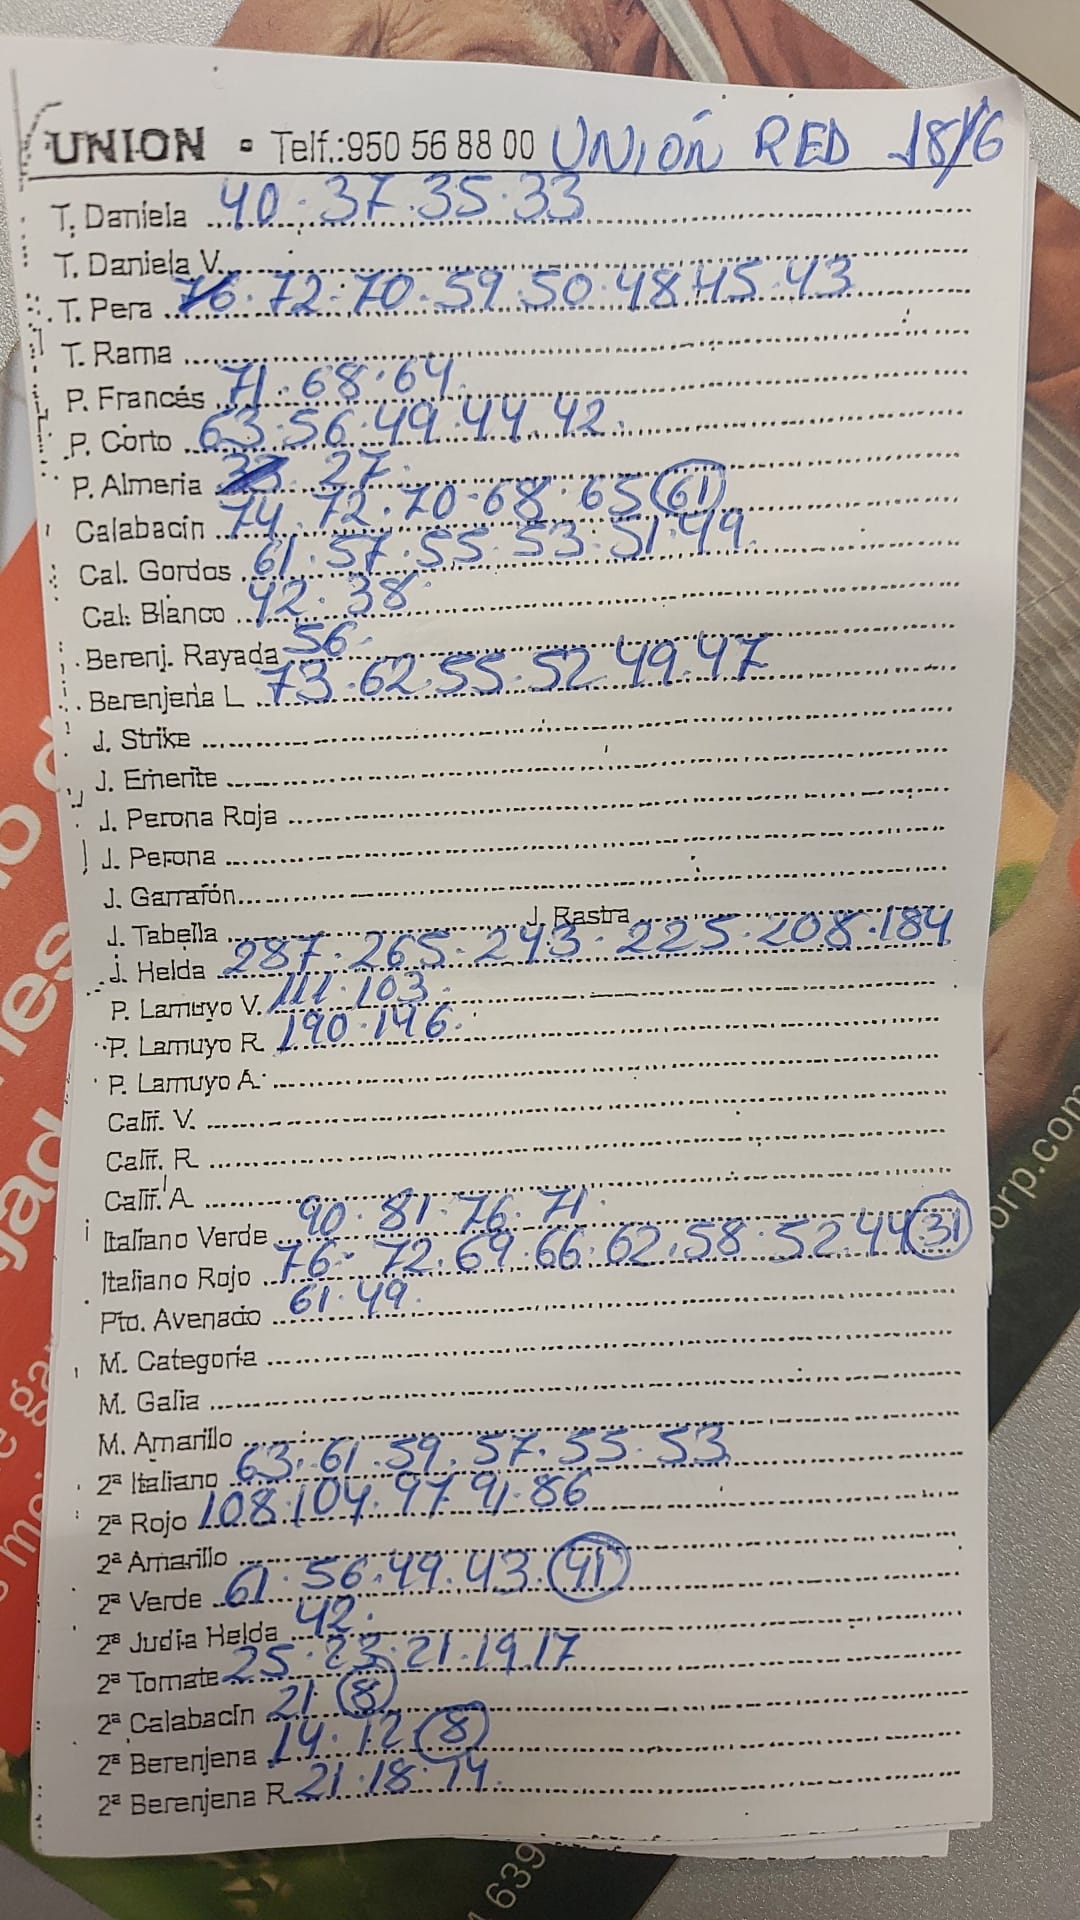 UNION • Telf.:950 56 88 00 UNIÓN RED 18/6
T. Daniela 40.37.35.33
T. Daniela V.
T. Pera 76.72.70.59.50.48.45.43
T. Rama
P. Francés 71.68.64.
P. Corto 63.56.49.44.42.
P. Almeria 27.
Calabacín 74.72.70.68.65 61
Cal. Gordos 61.57.55.53.51.49.
Cal. Blanco 42.38.
Berenj. Rayada 56.
Berenjena L 73.62.55.52.49.47
J. Strike
J. Emerite
J. Perona Roja
J. Perona
J. Garrafón
J. Tabella J. Rastra
J. Helda 287.265.243.225.208.184
P. Lamuyo V. 111.103.
P. Lamuyo R 190.146.
P. Lamuyo A
Calif. V.
Calif. R
Calif. A
Italiano Verde 90.81.76.71.
Italiano Rojo 76.72.69.66.62.58.52.44 31
Pto. Avenado 61.49.
M. Categoría
M. Galia
M. Amarillo
2ª Italiano 63.61.59.57.55.53
2ª Rojo 108.104.97.91.86
2ª Amarillo
2ª Verde 61.56.49.43. 41
2ª Judía Helda 42.
2ª Tomate 25.23.21.19.17
2ª Calabacín 21. 8
2ª Berenjena 14.12. 8
2ª Berenjena R 21.18.14.
jad
orp.com
639